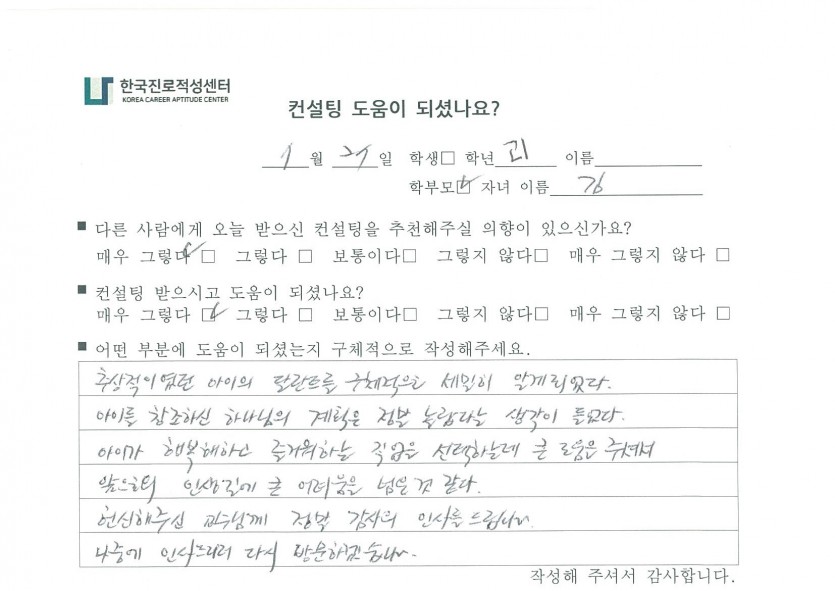 한국진로적성센터
KOREA CAREER APTITUDE CENTER
컨설팅 도움이 되셨나요?
1월 일 학생□ 학년 고1 이름
학부모☑ 자녀 이름 김
■ 다른 사람에게 오늘 받으신 컨설팅을 추천해주실 의향이 있으신가요?
매우 그렇다 ☑ 그렇다 □ 보통이다□ 그렇지 않다□ 매우 그렇지 않다 □
■ 컨설팅 받으시고 도움이 되셨나요?
매우 그렇다 ☑ 그렇다 □ 보통이다□ 그렇지 않다□ 매우 그렇지 않다 □
■ 어떤 부분에 도움이 되셨는지 구체적으로 작성해주세요.
추상적이었던 아이의 달란트를 구체적으로 세밀히 알게되었다.
아이를 창조하신 하나님의 계획은 정말 놀랍다는 생각이 들었다.
아이가 행복해하고 즐거워하는 직업을 선택하는데 큰 도움은 주셔서
앞으로의 인생길에 큰 어려움을 넘은 것 같다.
헌신해주신 교수님께 정말 감사의 인사를 드립니다.
나중에 인사드리러 다시 방문하겠습니다.
작성해 주셔서 감사합니다.